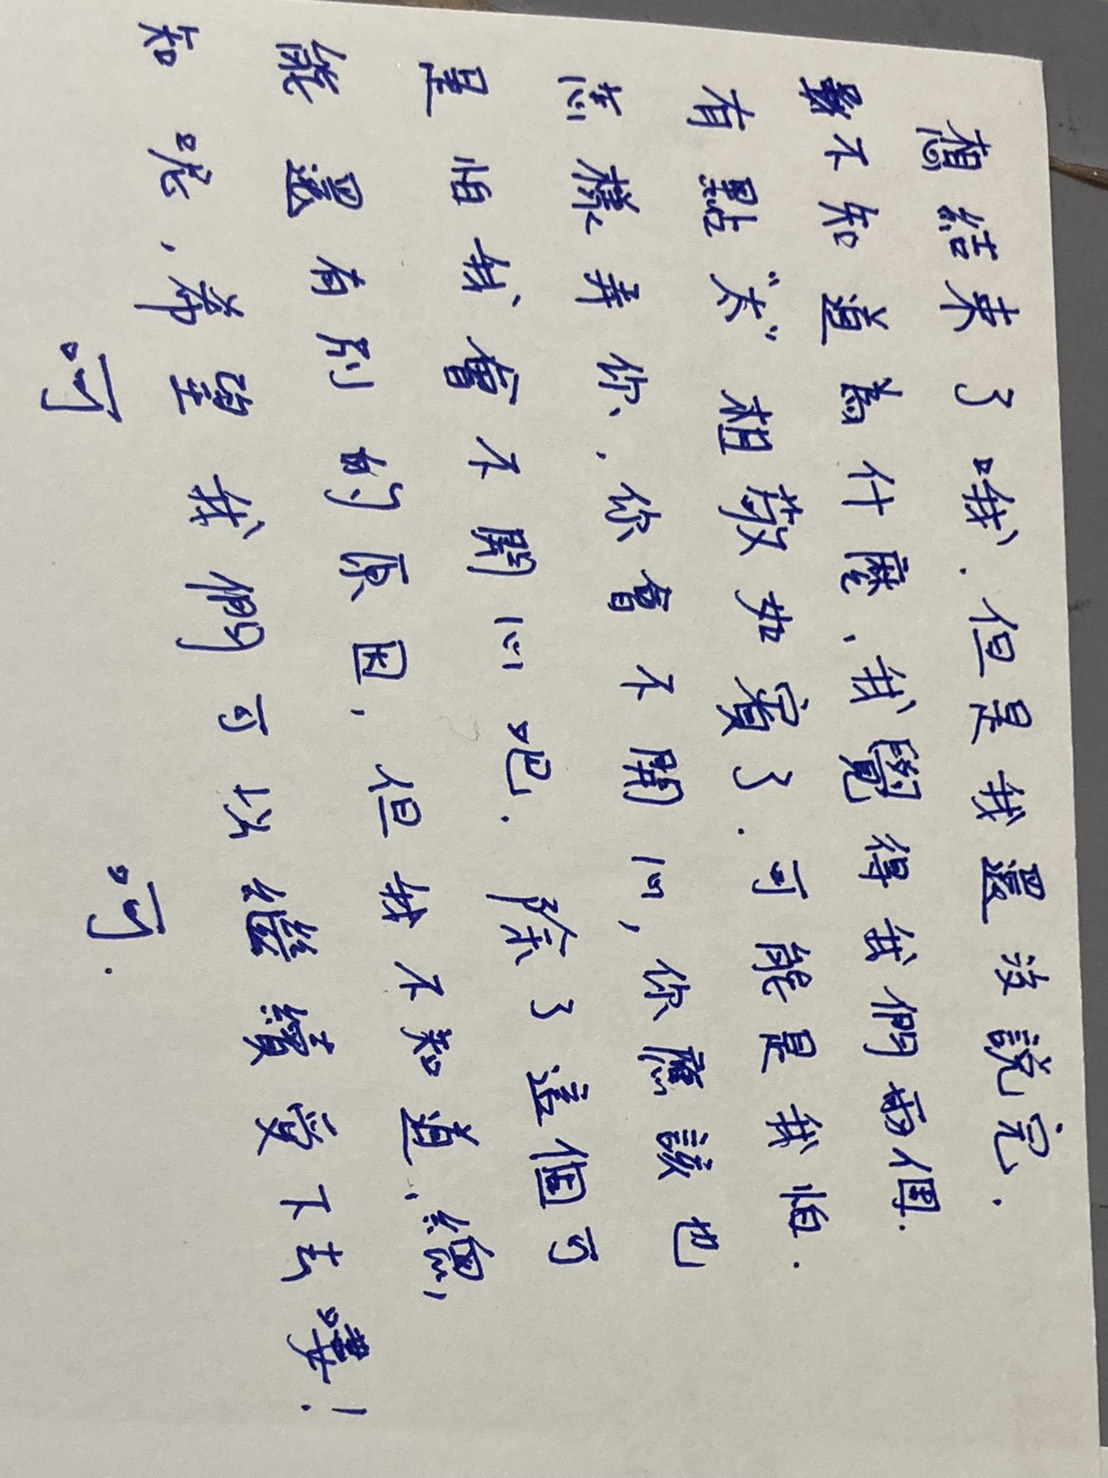 想結束了哦.但是我還沒說完.
不知道為什麼,我覺得我們兩個.
有點"太"相敬如賓了.可能是我怕.
怎樣弄你,你會不開心,你應該也
是怕我會不開心吧.除了這個可
能還有別的原因,但我不知道,總,
知呢,希望我們可以繼續愛下去嘍!
呵 呵.